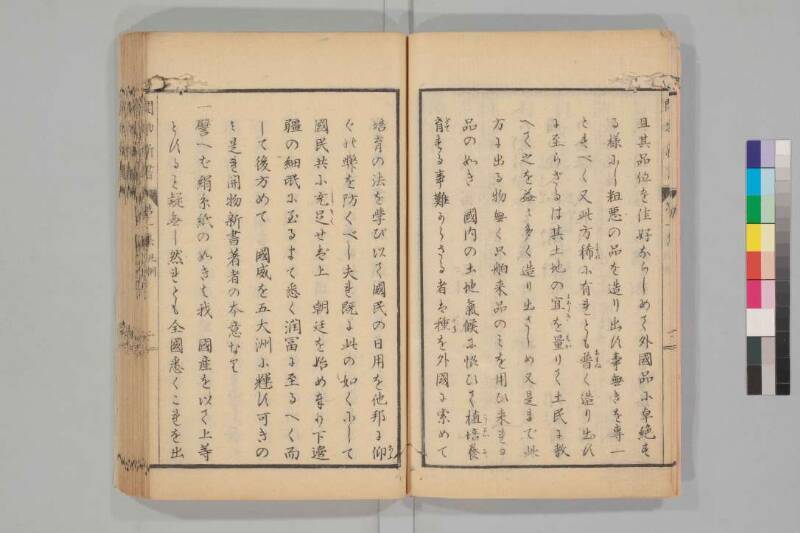 且其品位を佳好ならしめて外國品に卓絶す
る様にし粗悪の品を造り出ひ事無きを専一
とすべく又此方稀に有れとも普く造り出ひ
に至らざるは其土地の宜を量りて土民に教
へて之を益々多く造り出さしめ又是まで此
方に出る物無く只舶来品のミを用ひ来れる
品の如き 國内の土地氣候に従ひて植培養
育する事難からさる者は種を外國に索めて
培育の法を學び以て國民の日用を他邦に仰
ぐの弊を防くべし夫れ既に此の如くにして
國民共に充足せば上 朝廷を始め奉り下邊
疆の細民に至るまて悉く潤冨に至るへく而
して後方めて 國威を五大洲に輝ひ可きの
ミ是れ開物新書著者の本意なり
一譬へば絹糸紙の如きも我 國産を以て上等
とひるミ疑無し然れとも全國悉くこれを出